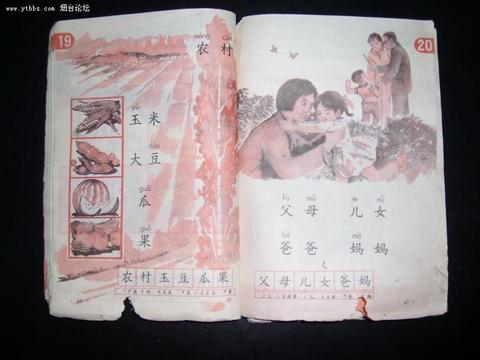 www.ytbbs.com 烟台论坛
19
nóng cūn
农村
yù
玉米
dòu
大豆
guā
瓜
guǒ
果
农村玉豆瓜果
20
Fù mǔ ér nǚ
父母 儿女
bà mā
爸爸 妈妈
父母儿女爸妈